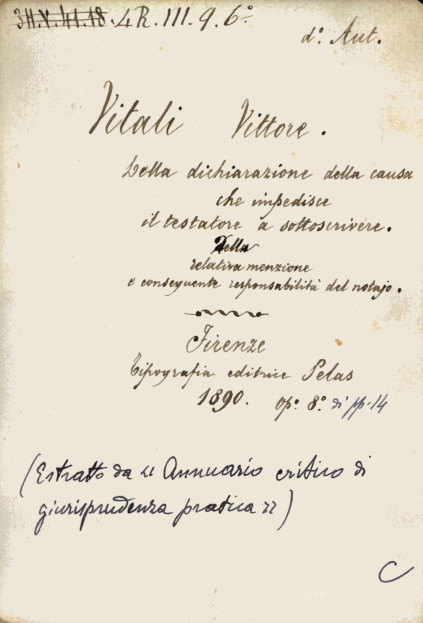 3H.V.41.18. 4R.III.9.6°
d°. Aut.
Vitali Vittore.
Della dichiarazione della causa
che impedisce
il testatore a sottoscrivere.
Della
relativa menzione
e conseguente responsabilità del notajo.
Firenze
Tipografia editrice Pelas
1890. op°. 8°. di pp. 14
(Estratto da "Annuario critico di
giurisprudenza pratica")
C